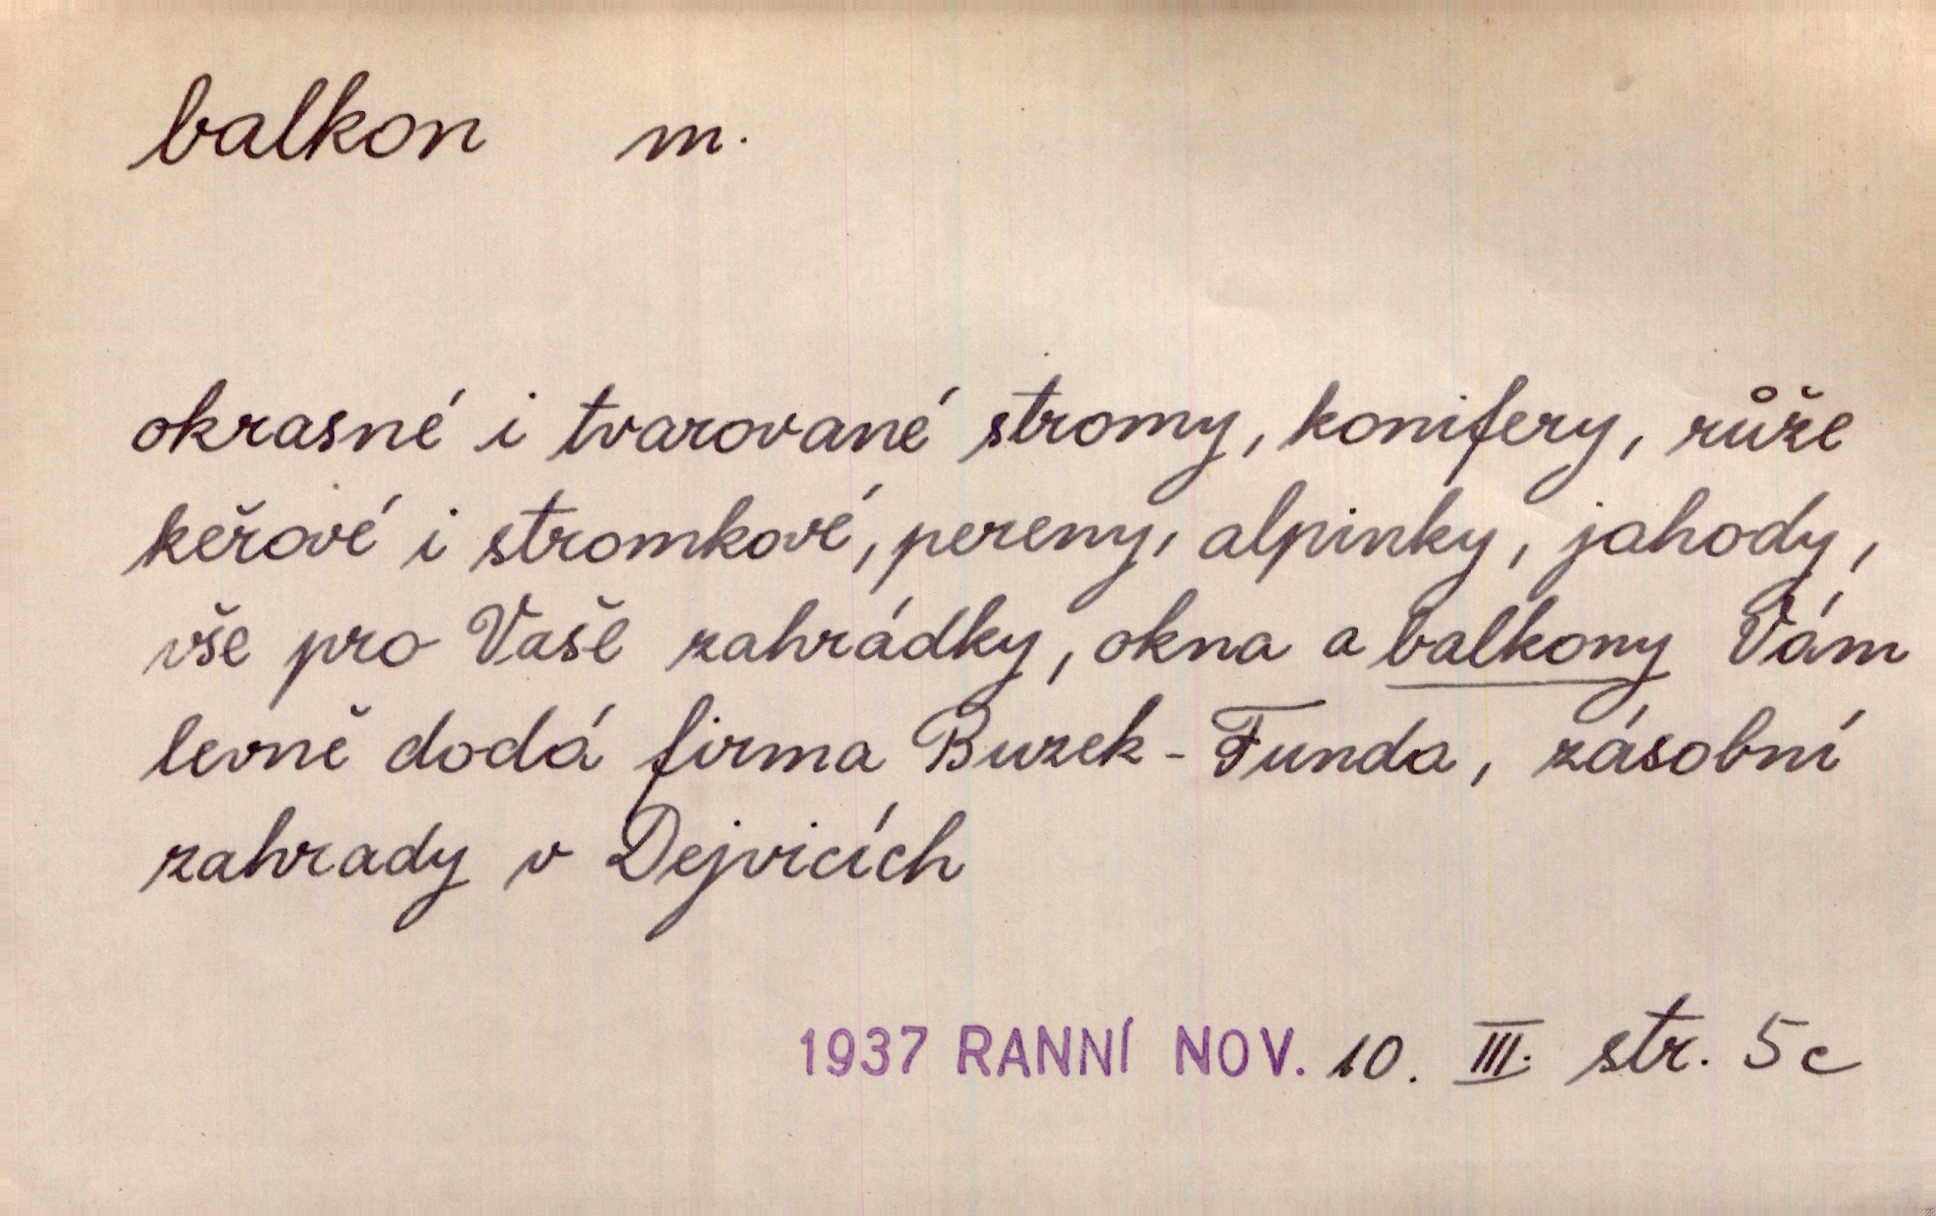 balkon m.
okrasné i tvarované stromy, konifery, růže
keřové i stromkové, pereny, alpinky, jahody,
vše pro Vaše zahrádky, okna a balkony Vám
levně dodá firma Buzek-Funda, zásobní
zahrady v Dejvicích
1937 RANNÍ NOV. 10. III. str. 5c